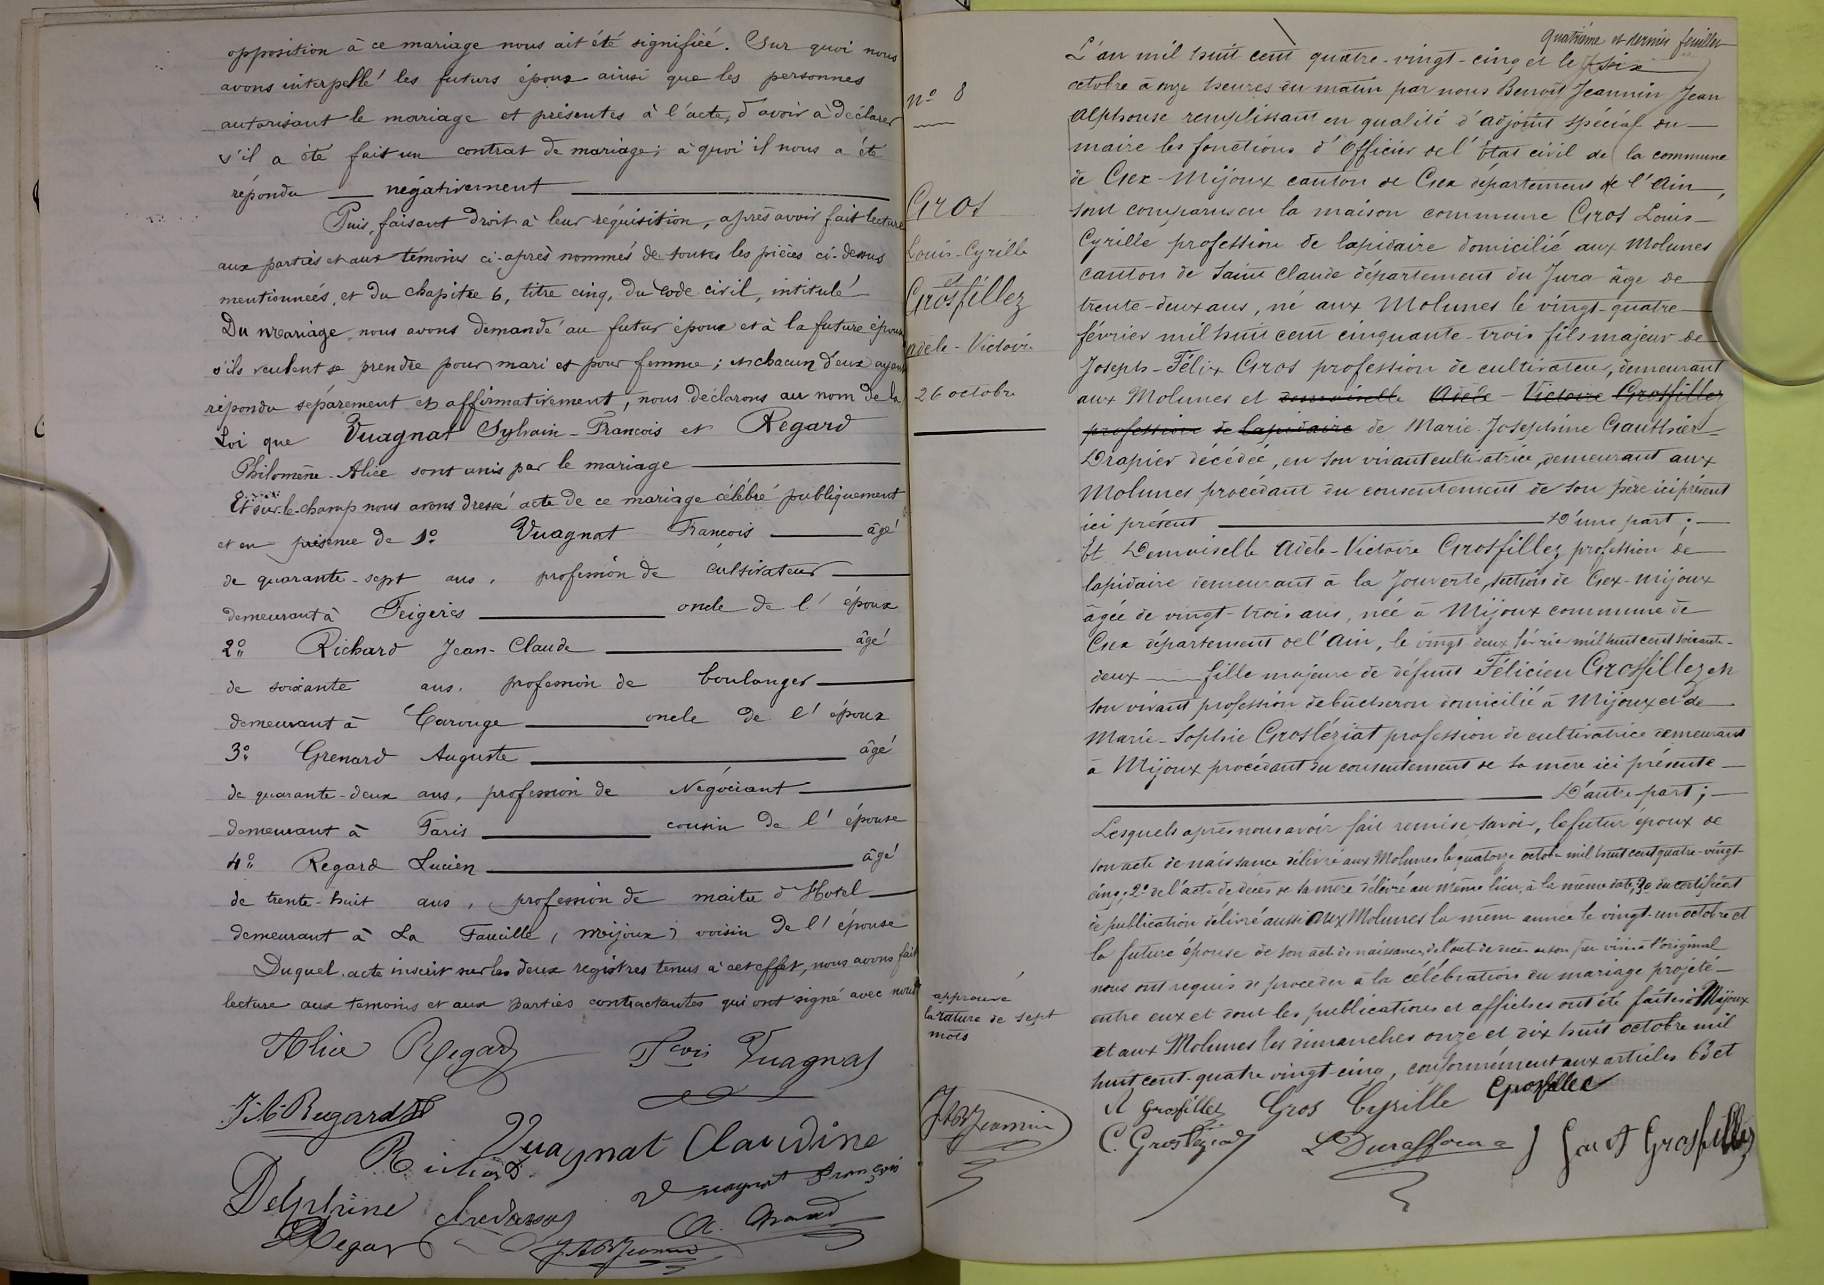 opposition à ce mariage nous ait été signifiée. Sur quoi nous
avons interpellé les futurs époux ainsi que les personnes
autorisant le mariage et présentes à l'acte, d'avoir à déclarer
s'il a été fait un contrat de mariage; à quoi il nous a été
répondu négativement
Puis, faisant droit à leur réquisition, après avoir fait lecture
aux parties et aux témoins ci-après nommés de toutes les pièces ci-dessus
mentionnées, et du chapitre 6, titre cinq, du Code civil, intitulé
Du mariage, nous avons demandé au futur époux et à la future épouse
s'ils veulent se prendre pour mari et pour femme; et chacun d'eux ayant
répondu séparément et affirmativement, nous déclarons au nom de la
Loi que Vuagnat Sylvain-François et Regard
Philomène-Alice sont unis par le mariage
Et sur-le-champ nous avons dressé acte de ce mariage célébré publiquement
et en présence de 1º Vuagnat François âgé
de quarante-sept ans, profession de cultivateur
demeurant à Feigères oncle de l'époux
2º Richard Jean-Claude âgé
de soixante ans, profession de boulanger
demeurant à Carouge oncle de l'époux
3º Grenard Auguste âgé
de quarante-deux ans, profession de Négociant
demeurant à Paris cousin de l'épouse
4º Regard Lucien âgé
de trente-huit ans, profession de maitre d'Hotel
demeurant à La Faucille, (mijoux) voisin de l'épouse
Duquel acte inscrit sur les deux registres tenus à cet effet, nous avons fait
lecture aux temoins et aux parties contractantes qui ont signé avec nous
Alice Regard Fcois Vuagnat
Regard
Richard Vuagnat Claudine
Delphine Vuagnat François
Regard
nº 8
Gros
Louis-Cyrille
et
Grosfillez
Adèle-Victoire
26 octobre
approuvé
la rature de sept
mots
Jeannin
quatrième et dernier feuillet
L'an mil huit cent quatre-vingt-cinq et le
octobre à onze heures du matin par nous Benoît Jeannin Jean
Alphonse remplissant en qualité d'adjoint spécial du
maire les fonctions d'Officier de l'État civil de la commune
de Gex-Mijoux canton de Gex département de l'Ain,
sont comparus en la maison commune Gros Louis-
Cyrille profession de lapidaire domicilié aux Molunes
canton de Saint Claude département du Jura âgé de
trente-deux ans, né aux Molunes le vingt-quatre
février mil huit cent cinquante-trois fils majeur de
Joseph-Félix Gros profession de cultivateur, demeurant
aux Molunes et demoiselle Adèle-Victoire Grosfillez
profession de lapidaire de Marie Josephine Gauthier-
Drapier décédée, en son vivant cultivatrice, demeurant aux
Molunes procédant du consentement de son père ici présent
ici présent D'une part;
Et Demoiselle Adèle-Victoire Grosfillez profession de
lapidaire demeurant à la Jouverte, section de Gex-Mijoux
âgée de vingt-trois ans, née à Mijoux commune de
Gex département de l'Ain, le vingt deux février mil huit cent soixante-
deux fille majeure de défunt Félicien Grosfillez en
son vivant profession de bucheron domicilié à Mijoux et de
Marie-Sophie Grosléziat profession de cultivatrice demeurant
à Mijoux procédant du consentement de sa mère ici présente
D'autre part;
Lesquels après nous avoir fait remise, savoir, le futur époux de
son acte de naissance délivré aux Molunes le quatorze octobre mil huit cent quatre-vingt-
cinq, 2º de l'acte de décès de sa mère délivré au même lieu, à la même date, 3º du certificat
de publication délivré aussi aux Molunes la même année le vingt-un octobre et
la future épouse de son acte de naissance, de l'acte de décès de son père visé à l'original
nous ont requis de procéder à la célébration du mariage projeté
entre eux et dont les publications et affiches ont été faites à Mijoux
et aux Molunes les dimanches onze et dix huit octobre mil
huit cent-quatre vingt-cinq, conformément aux articles 63 et
A Grosfillez Gros Cyrille Grosfillez
C. Grosléziat L Duraffourg J Grosfillez